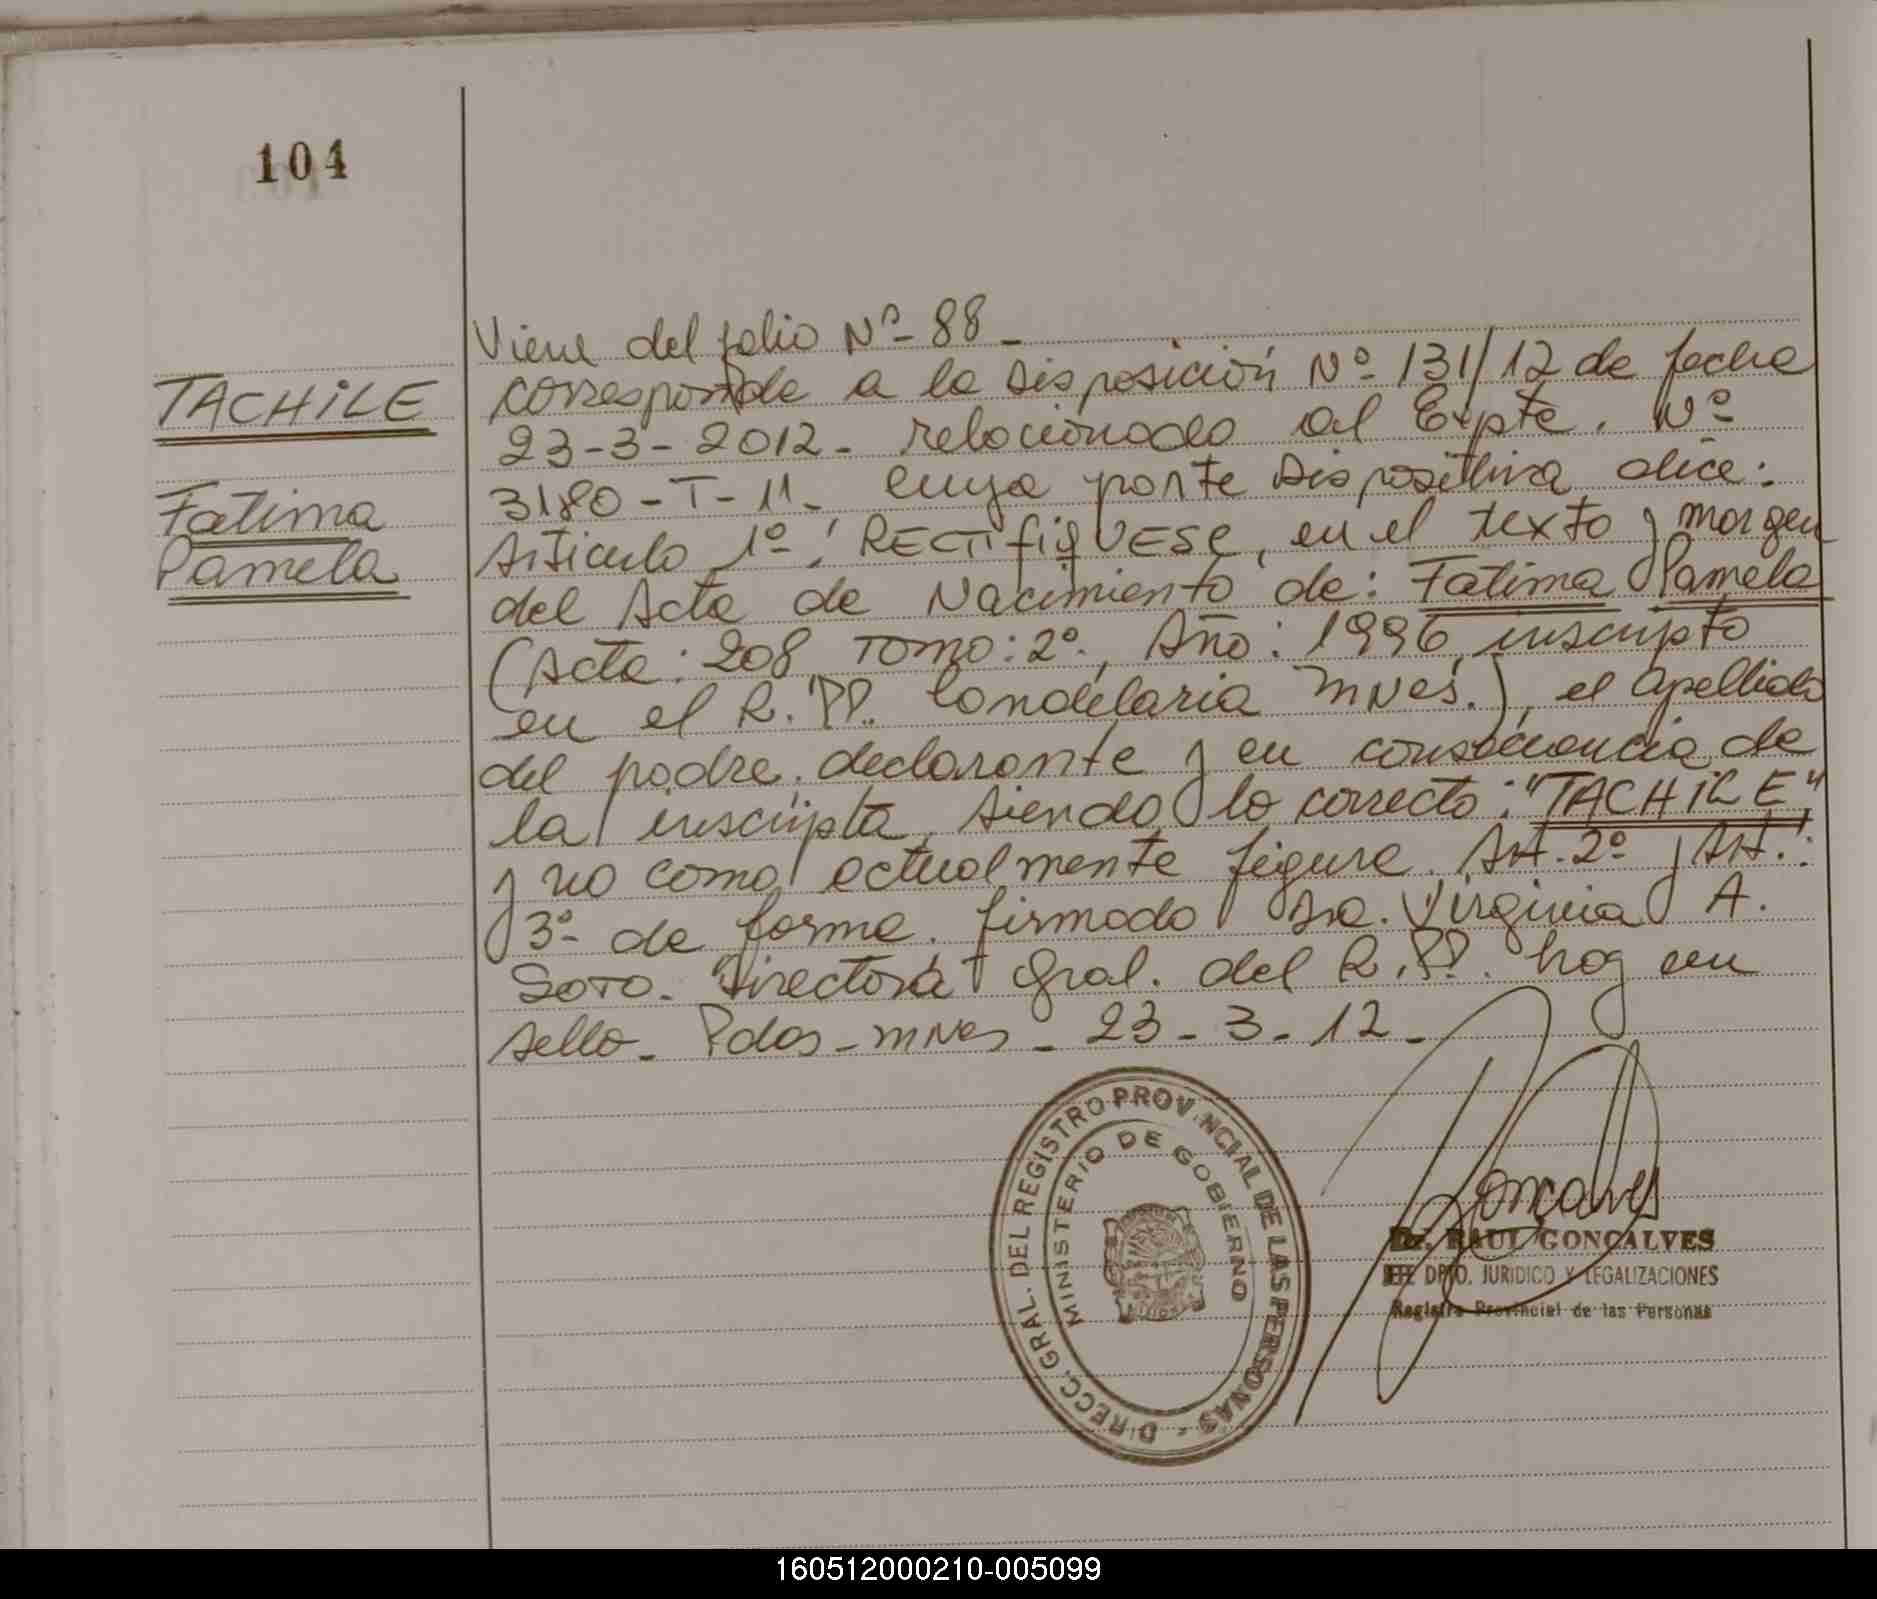 104
TACHILE
Fatima
Pamela
Viene del folio Nº- 88_
corresponde a la Disposición Nº 131/12 de fecha
23-3-2012_ relacionado al Expte. Nº
3180-T-11_ cuya parte Dispositiva dice:
Articulo 1º: RECTIFIQUESE, en el texto y margen
del Acta de Nacimiento de: Fatima Pamela
(Acta: 208, Tomo: 2º, Año: 1996, inscripto
en el R. PP. Candelaria Mnes.), el apellido
del padre declarante y en consecuencia de
la inscripta, siendo lo correcto: "TACHILE",
y no como actualmente figura. Art. 2º y Art.:
3º de forma. firmado Dra. Virginia A.
Soto. Directora Gral. del R. PP. hay un
sello_ Pdas-Mnes_ 23-3-12_
DIRECC. GRAL. DEL REGISTRO PROVINCIAL DE LAS PERSONAS -
MINISTERIO DE GOBIERNO
Goncalves
Dr. RAUL GONCALVES
JEFE DPTO. JURIDICO Y LEGALIZACIONES
Registro Provincial de las Personas
160512000210-005099